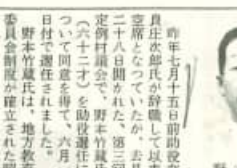 昨年七月十五日前助役
良庄次郎氏が辞職して以来
空席となつていたが、去
二十八日開かれた、第三回
定例村議会で、野本竹蔵氏
(六十二才)を助役選任に
ついて同意を得て、六月
日付で選任されました。
野本竹蔵氏は、地方教育
委員会制度が確立された昭